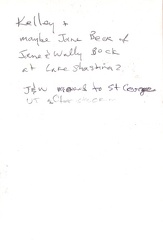 Kelley &
maybe Jane Beck of
Jane & Wally Beck
at Lake Shastina?
J&W moved to St George
UT after